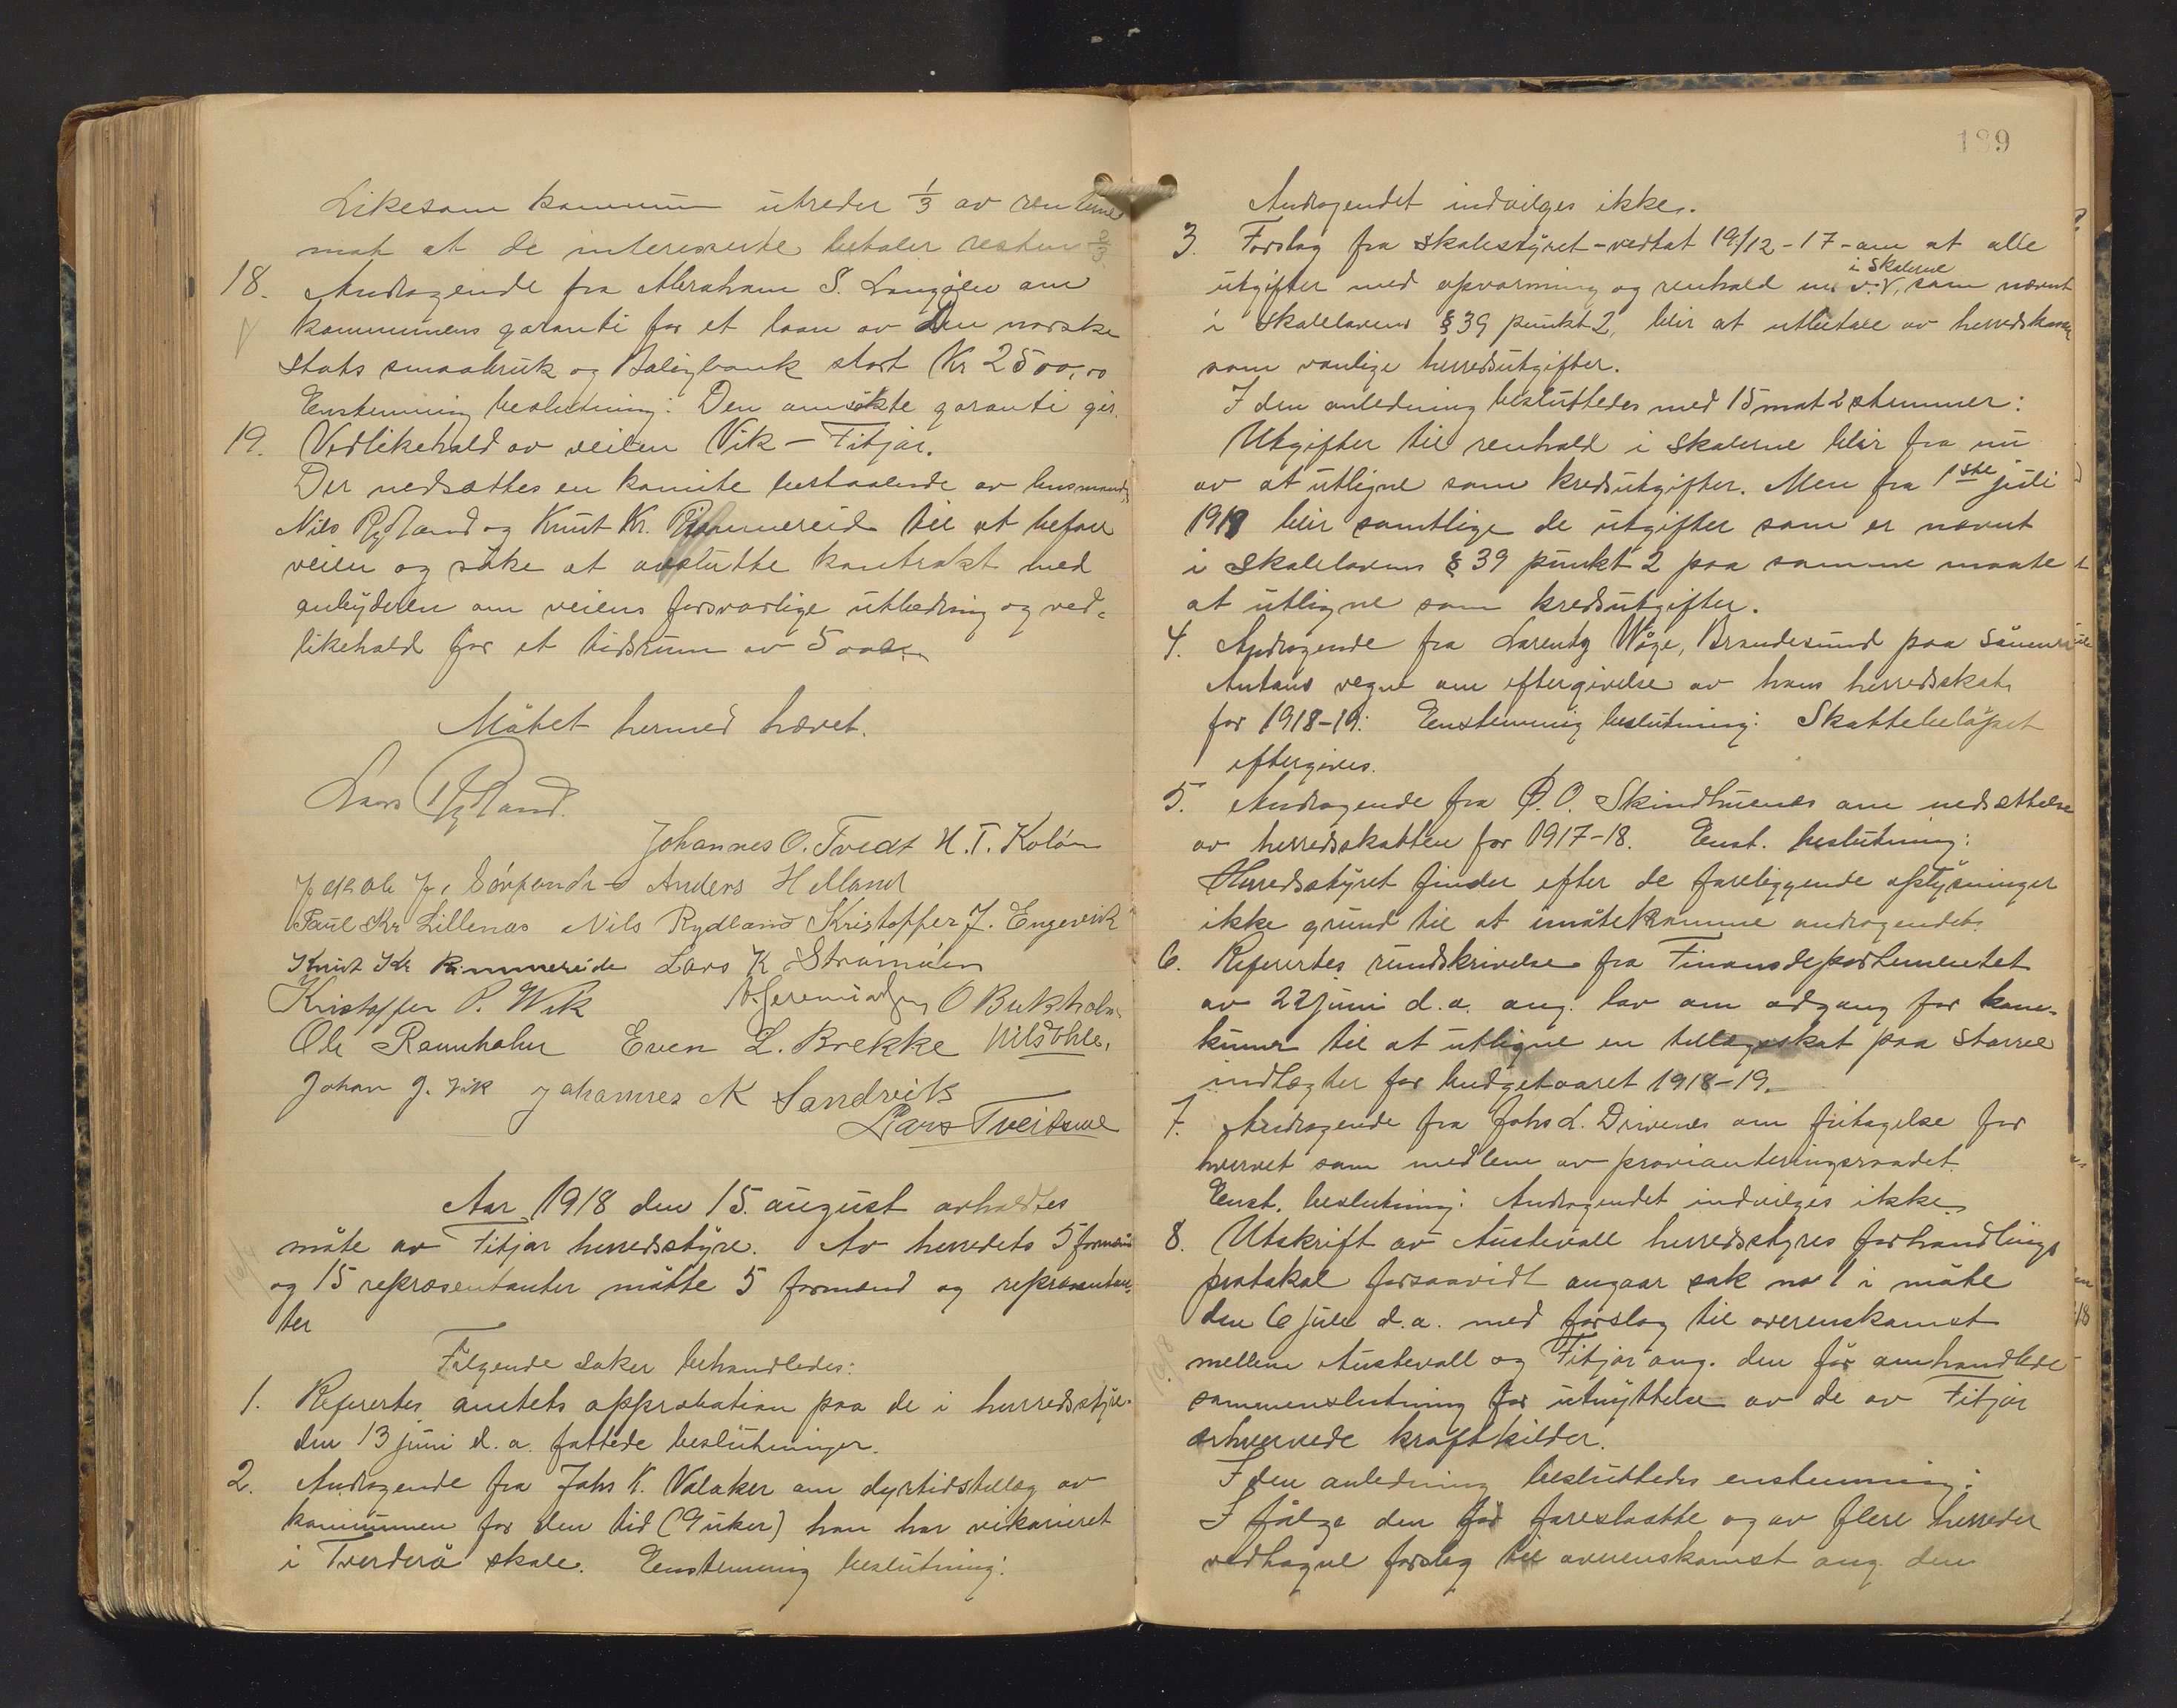 Likesom kommunen utreder 1/3 av renterne
mot at de interesserte betaler resten 2/3
18. Andragende fra Abraham S. Langöen om
kommunens garanti for et laan av den norske
stats smaabruk og Boligbank stort Kr 2500,00
Enstemmig beslutning: Den ansökte garanti gis.
19. Vedlikehold av veilen Vik – Fitjar.
Der nedsættes en komite bestaaende av lensmand
Nils Rydland og Knut Kr. Rimmereid til at befare
veien og söke at avslutte kontrakt med
anbyderen om veiens forsvarlige utbedring og ved-
likehold for et tidsrum av 5 aar.
Mötet hermed hævet.
Lars Rydland.
Johannes O. Tvedt H. T. Koløen
Jakob J. Sørfonden Anders Helland
Paul Kr Lillenæs Nils Rydland Kristoffer J. Engevik
Knut Kr Rimmereide Lars K Strømøen
Kristoffer P. Wik A Jeremiassen O Bukholm
Ole Raunholm Even L. Brekke Nils Ohle.
Johan J. Vik Johannes K Sandvik
Lars Tveitene
Aar 1918 den 15. august avholdtes
möte av Fitjar herredsstyre. Av herredets 5 formænd
og 15 repræsentanter mötte 5 formænd og repræsentan-
ter
Fölgende saker behandledes:
1. Refertes amtets approbation paa de i herredsstyre
den 13 juni d. a. fattede beslutninger.
2. Andragende fra Johs K. Valaker om dyrtidstillæg av
kommunen for den tid (9 uker) han har vikarieret
i Tverderå skole. Enstemmig beslutning:
189
Andragendet indvilges ikke.
3. Forslag fra skolestyret – vedtat 19/12 – 17 – om at alle
i skolerne
utgifter med opvarming og renhold m. v. V, som nævnt
i skolelovens § 39 punkt 2, blir at utbetale av herredskassen
som vanlige herredsutgifter.
I den anledning besluttedes med 15 mot 2 stemmer:
Utgifter til renhold i skolerne blir fra nu
av at utligne som kredsutgifter. Men fra 1ste juli
1919 blir samtlige de utgifter som er nævnt
i skolelovens § 39 punkt 2 paa samme maate
at utligne som kredsutgifter.
4. Andragende fra Larentz Våge, Brandesund paa sönnens
Antons vegne om eftergivelse av hans herredsskat
for 1918–19: Enstemmig beslutning: Skattebelöpet
eftergives.
5. Andragende fra Ø. O. Skindhuenes om nedsættelse
av herredsskatten for 1917–18. Enst. beslutning:
Herredsstyret finder efter de foreliggende oplysninger
ikke grund til at imötekomme andragendet.
6. Refertes rundskrivelse fra Finansdepartementet
av 22 juni d. a. ang. lov om adgang for kom-
kuner til at utligne en tillægsskat paa större
indtægter for budgetaaret 1918–19.
7. Andragende fra Johs L. Drivenes om fritagelse for
hvervet som medlem av provianteringsraadet.
Enst. beslutning: Andragendet indvilges ikke
8. Utskrift av Austevoll herredsstyres forhandlings
protokol forsaavidt angaar sak no 1 i möte
den 6 juli d. a. med forslag til overenskomst
mellem Austevoll og Fitjar ang. den för omhandlede
sammenslutning for utnyttelse av de av Fitjar
erhvervede kraftkilder.
I den anledning besluttedes enstemmig:
I fölge den för foreslaatte og av flere herreder
vedtagne forslag til overenskomst ang. den